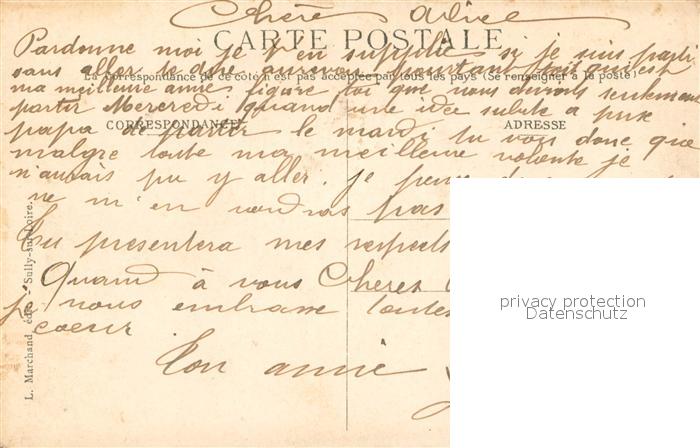 Chère Alice
CARTE POSTALE
Pardonne moi je t'en supplie si je suis parti
sans aller te dire au revoir pourtant
La correspondance de ce côté n'est pas acceptée par tous les pays (Se renseigner à la poste)
ma meilleure amie figure toi que nous devions seulement
partir Mercredi quand une idée subite a pris
CORRESPONDANCE
ADRESSE
papa de partir le mardi tu vois donc que
malgre toute ma meilleure volonte je
n'aurais pu y aller. je pense
ne m'en voudras pas
Tu presentera mes respects
Quand à vous Cheres
je vous embrasse toutes
coeur
Ton amie
L. Marchand, édit. - Sully-sur-Loire.
privacy protection
Datenschutz